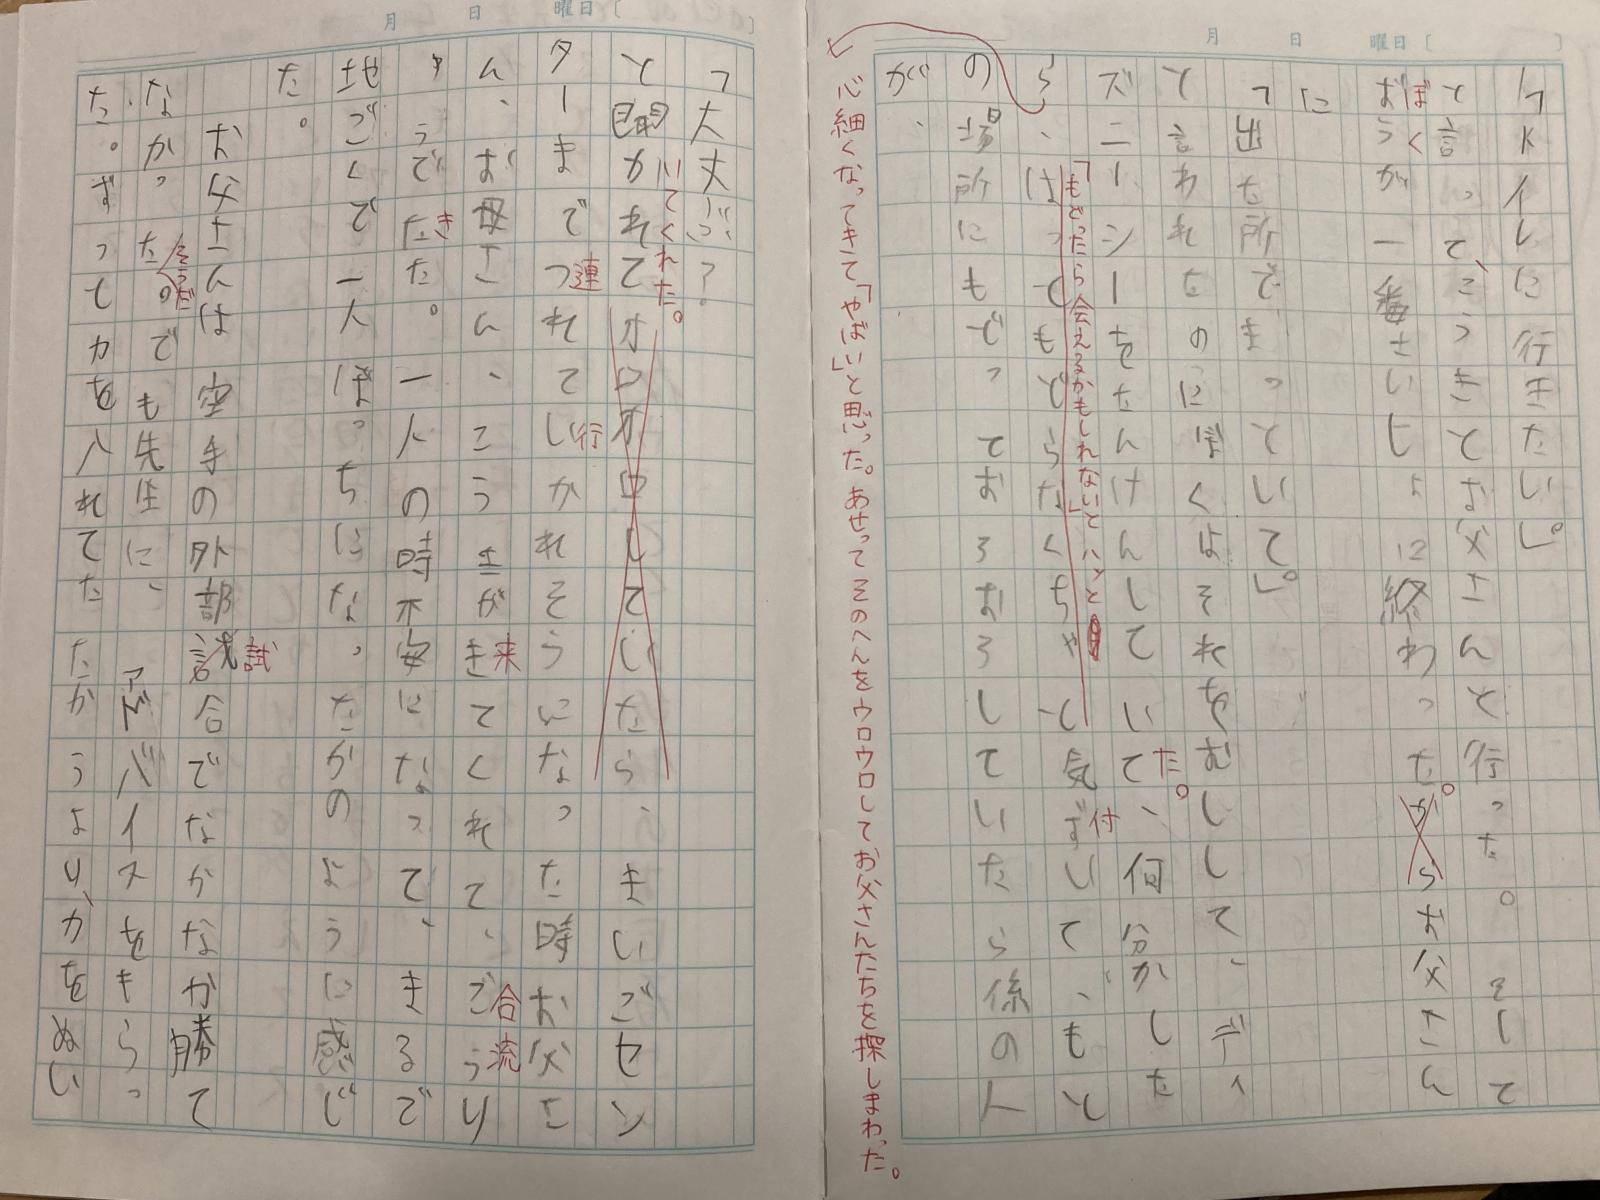 月 日 曜日〔 〕
「トイレに行きたい」。
と言って、こうきとお父さんと行った。そして
ぼく
おうが一番さいしょに終わった。がらお父さん
に
「出た所でまっといて」。
と言われたのにぼくはそれをむしして、ディ
ズニーシーをたんけんしていて、何分かした
た。
ら、はってもどらなくちゃと気ずいて、もと
付
「もどったら会えるかもしれない」とハッと
の場所にもどっておろおろしていたら係の人
が、
心細くなってきて「やばい」と思った。あせってそのへんをウロウロしてお父さんたちを探しまわった。
月 日 曜日〔
「大丈ぶ?
と聞かれてオロオロしていたら、まいごセン
いてくれた。
ターまでつれてしかれそうになった時お父さ
連 行
ん、お母さん、こうきが きてくれて、ごうり
来 合流
ゅうできた。一人の時不安になって、まるで
き
地ごくで一人ぼっちになったかのように感じ
た。
お父さんは空手の外部試合でなかなか勝て
試
なかったのでも先生に、アドバイスをもらっ
そうだ
た。ずっとカを入れてたたかうより、力をぬい